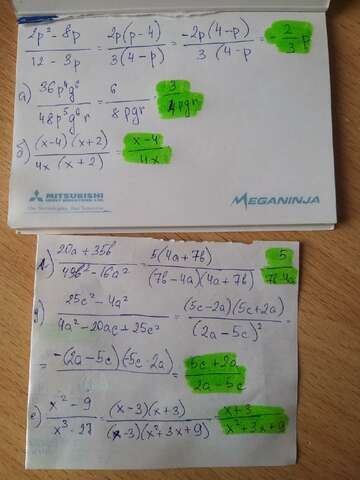 2p² - 8p / 12 - 3p = 2p(p-4) / 3(4-p) = -2p(4-p) / 3(4-p = -2/3 p
а) 36p⁴q⁶ / 48p⁵q⁶r = 6 / 8pqr = 3 / 4pqr
б) (x-4)(x+2) / 4x(x+2) = x-4 / 4x
MITSUBISHI
MEGANINJA
20a + 35b / 49b² - 16a² = 5(4a+7b) / (7b-4a)(4a+7b) = 5 / 7b-4a
25c² - 4a² / 4a² - 20ac + 25c² = (5c-2a)(5c+2a) / (2a-5c)² =
= -(2a-5c)(5c-2a) = 5c+2a / 2a-5c
е) x² - 9 / x³ - 27 = (x-3)(x+3) / (x-3)(x²+3x+9) = x+3 / x²+3x+9